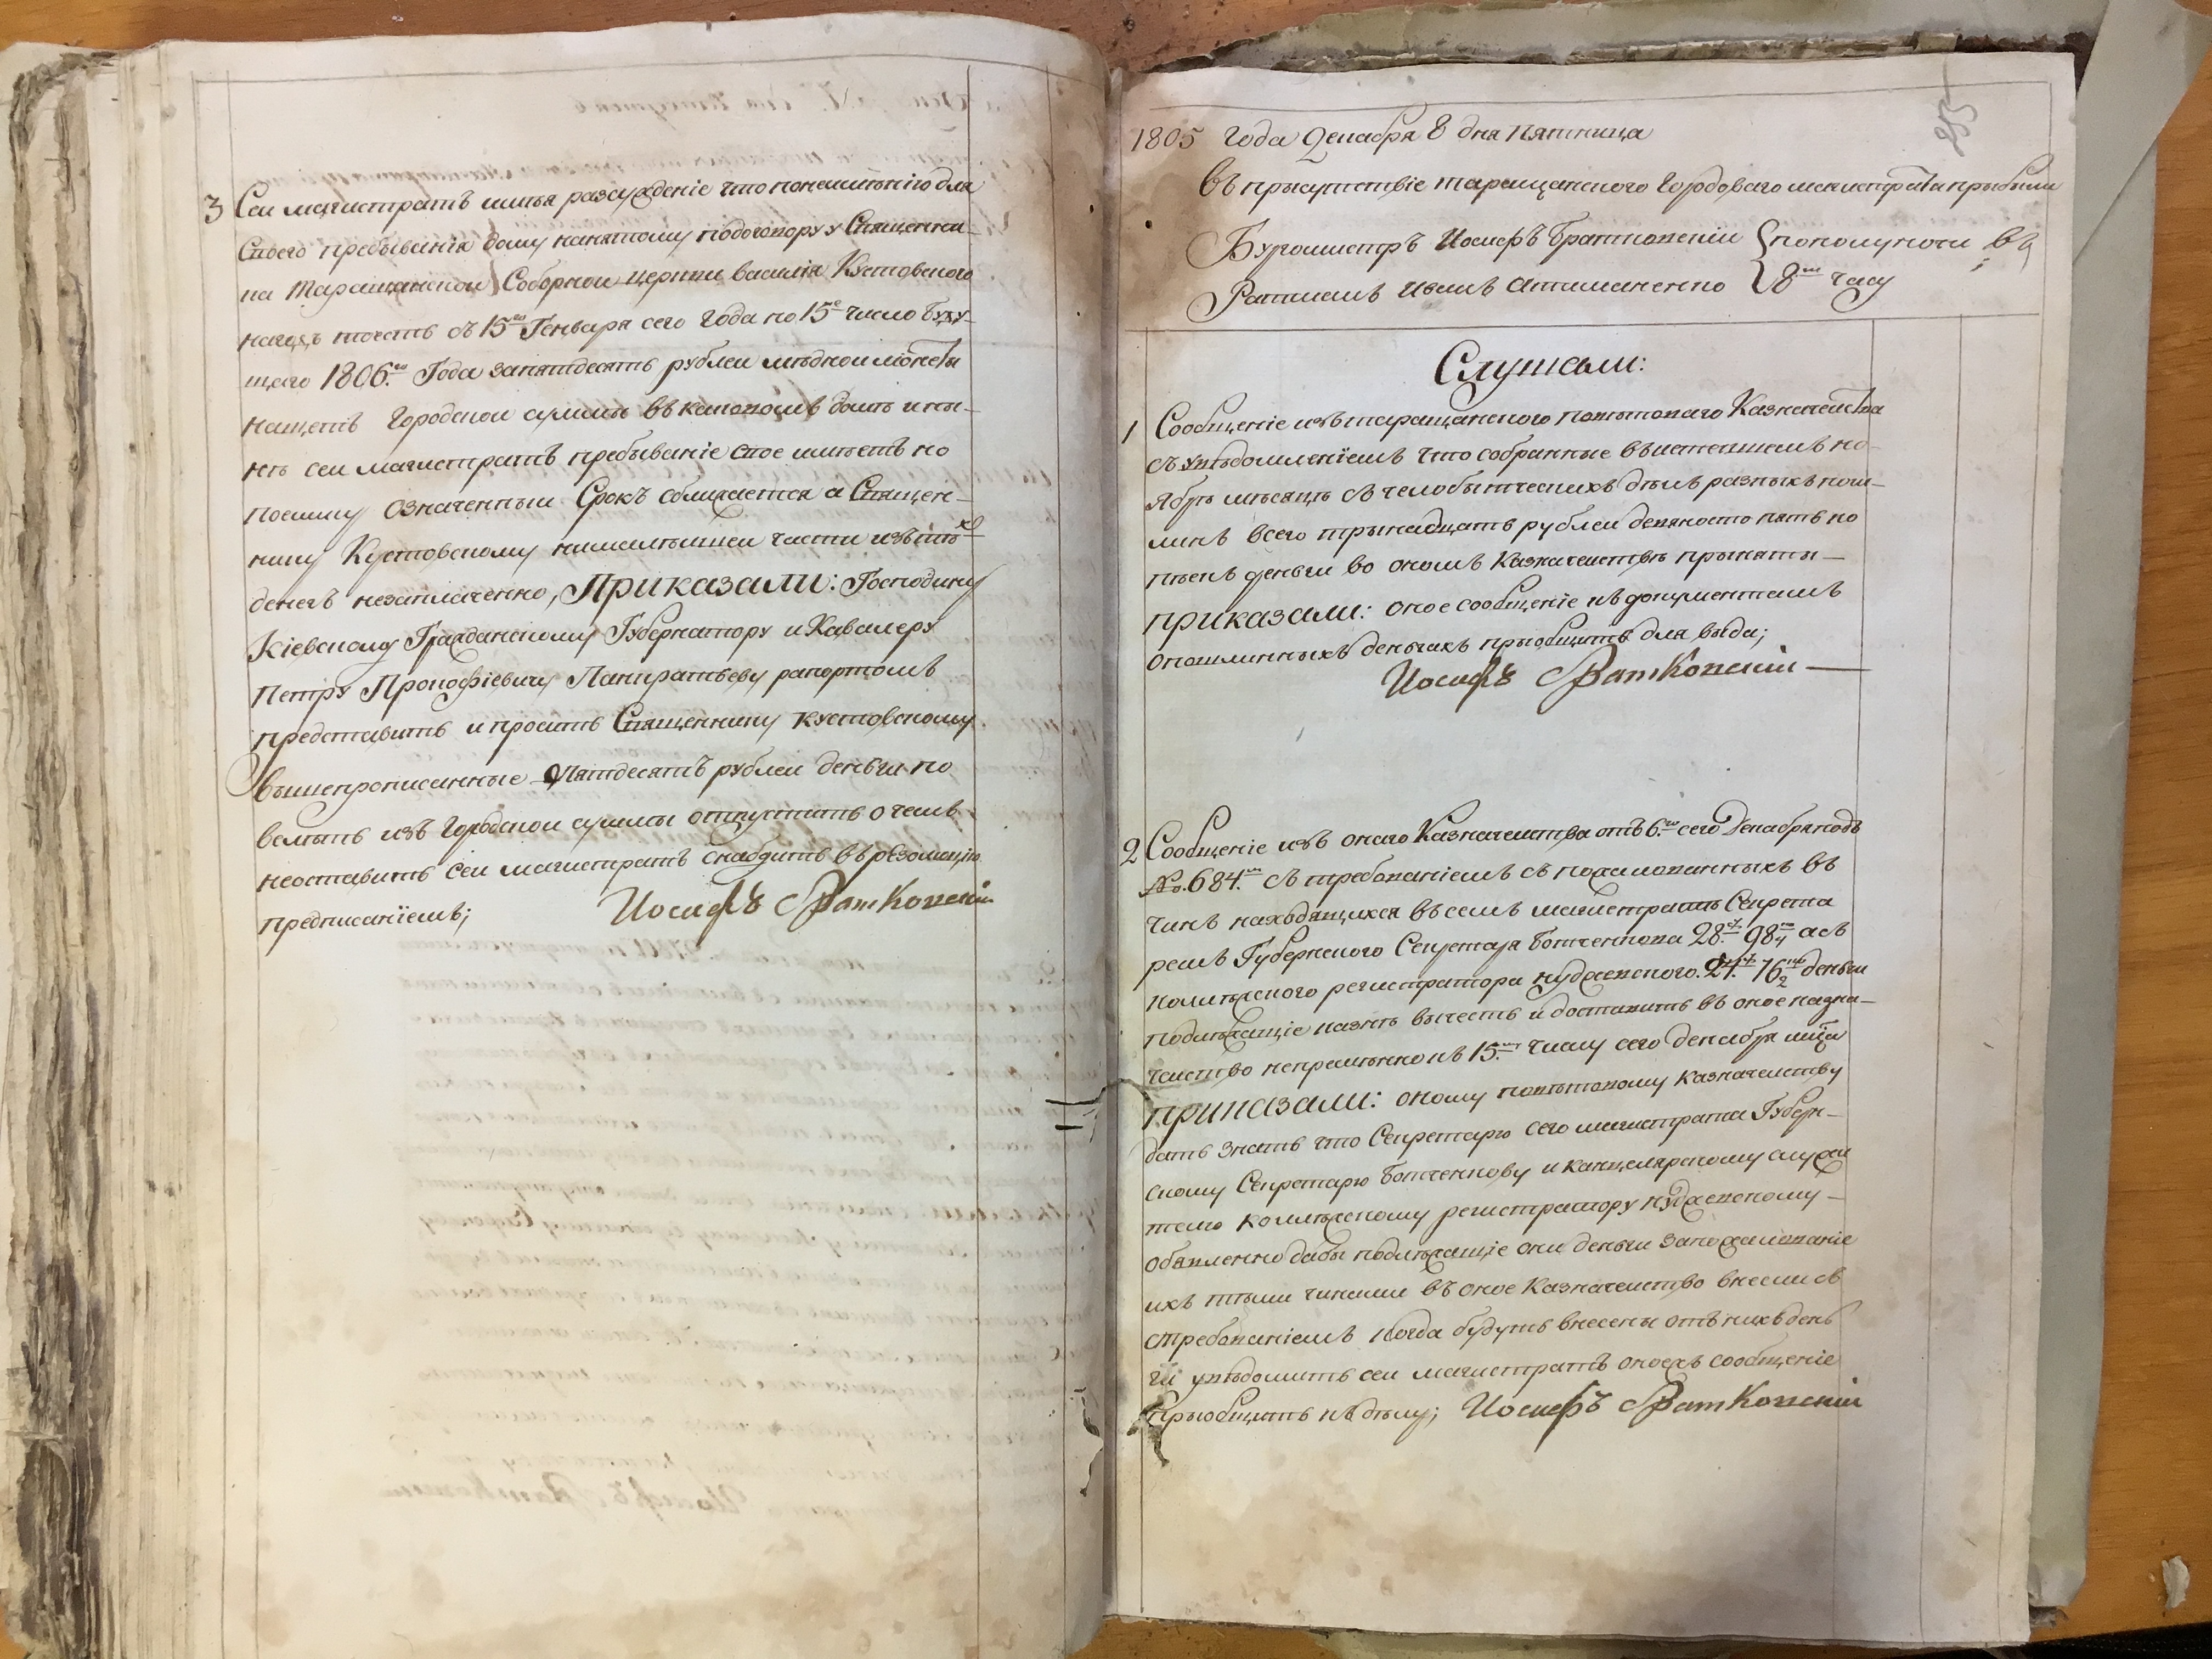 3 Сей магистратъ имѣя разсужденіе что понеимѣнію для
своего пребыванія дому нанятому подоговору у священни-
ка Таращанской Соборной церкви василія Кустовского
съ 15го Генваря сего Года по 15е число Буду-
щаго 1806го Года запятдесятъ рублей мѣдной монеты
нащетъ Городской суммы въ каковомъ домѣ и ны-
нѣ сей магистратъ пребываніе свое имѣетъ но
поелику означенный Срокъ сближается а Священ-
нику Кустовскому нималѣйшей части изъ тѣхъ
денегъ незаплаченно, Приказали: Господину
Кіевскому Гражданскому Губернатору и Кавалеру
Петру Прокофіевичу Панкратьеву рапортомъ
представить и просить Священнику Кустовскому
вышепрописанные Пятдесятъ рублей деньги по
велѣть изъ Городской суммы отпустить о чемъ
неоставить сей магистратъ снабдить въ резолюцію
предписаніемъ; Иосифъ Братковскій
255
1805 Года Декабря 8 дня Пятница
Въ присутствіе таращанского Городоваго магистрата прибыли
Бургомистръ Иосифъ Братковскій пополуночи въ
Ратманъ Иванъ Атаманенко 8мъ часу
Слушали:
1 Сообщеніе изъ таращанского повѣтоваго Казначейства
съ увѣдомленіемъ что собранные въ истекшемъ но-
ябрѣ мѣсяцѣ съ челобытческихъ дѣлъ разныхъ пош-
линъ всего трынадцать рублей девяносто пять ко
пѣекъ деньги во ономъ Казначействѣ прыняты —
приказали: оное сообщеніе къ документамъ
опошлинныхъ деньгахъ прыобщить для выда;
Иосифъ Братковскій —
2 Сообщеніе изъ оного Казначейства отъ 6го сего Декабря подъ
№ 684мъ съ требованіемъ съ пожалованныхъ въ
чинъ находящихся въ семъ магистратѣ Секрета
ремъ Губернского Секретаря Ботченкова 28 р. 98 ко асъ
колежского регистратора кудаевского 24 р. 76 ко деньги
подлежащіе казнѣ вычесть и доставить въ оное казна-
чейство непремѣнно къ 15му числу сего декабря мѣца
приказали: оному повѣтовому казначейству
дать знать что Секретарю сего магистрата Губерн-
скому Секретарю Ботченкову и канцелярскому служи
телю колежскому регистратору кудаевскому —
объявленно дабы подлежащіе они деньги запожалованіе
ихъ тѣми чинами въ оное Казначейство внесли съ
стребованіемъ когда будутъ внесены отъ нихъ день
ги увѣдомить сей магистратъ оноежъ сообщеніе
прыобщить къ дѣлу; Иосифъ Братковскій